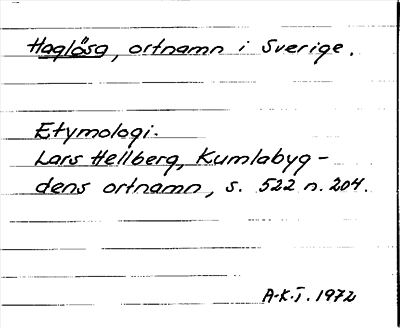 Haglösa, ortnamn i Sverige.
Etymologi.
Lars Hellberg, Kumlabyg-
dens ortnamn, s. 522 n. 204.
A-K.T. 1972